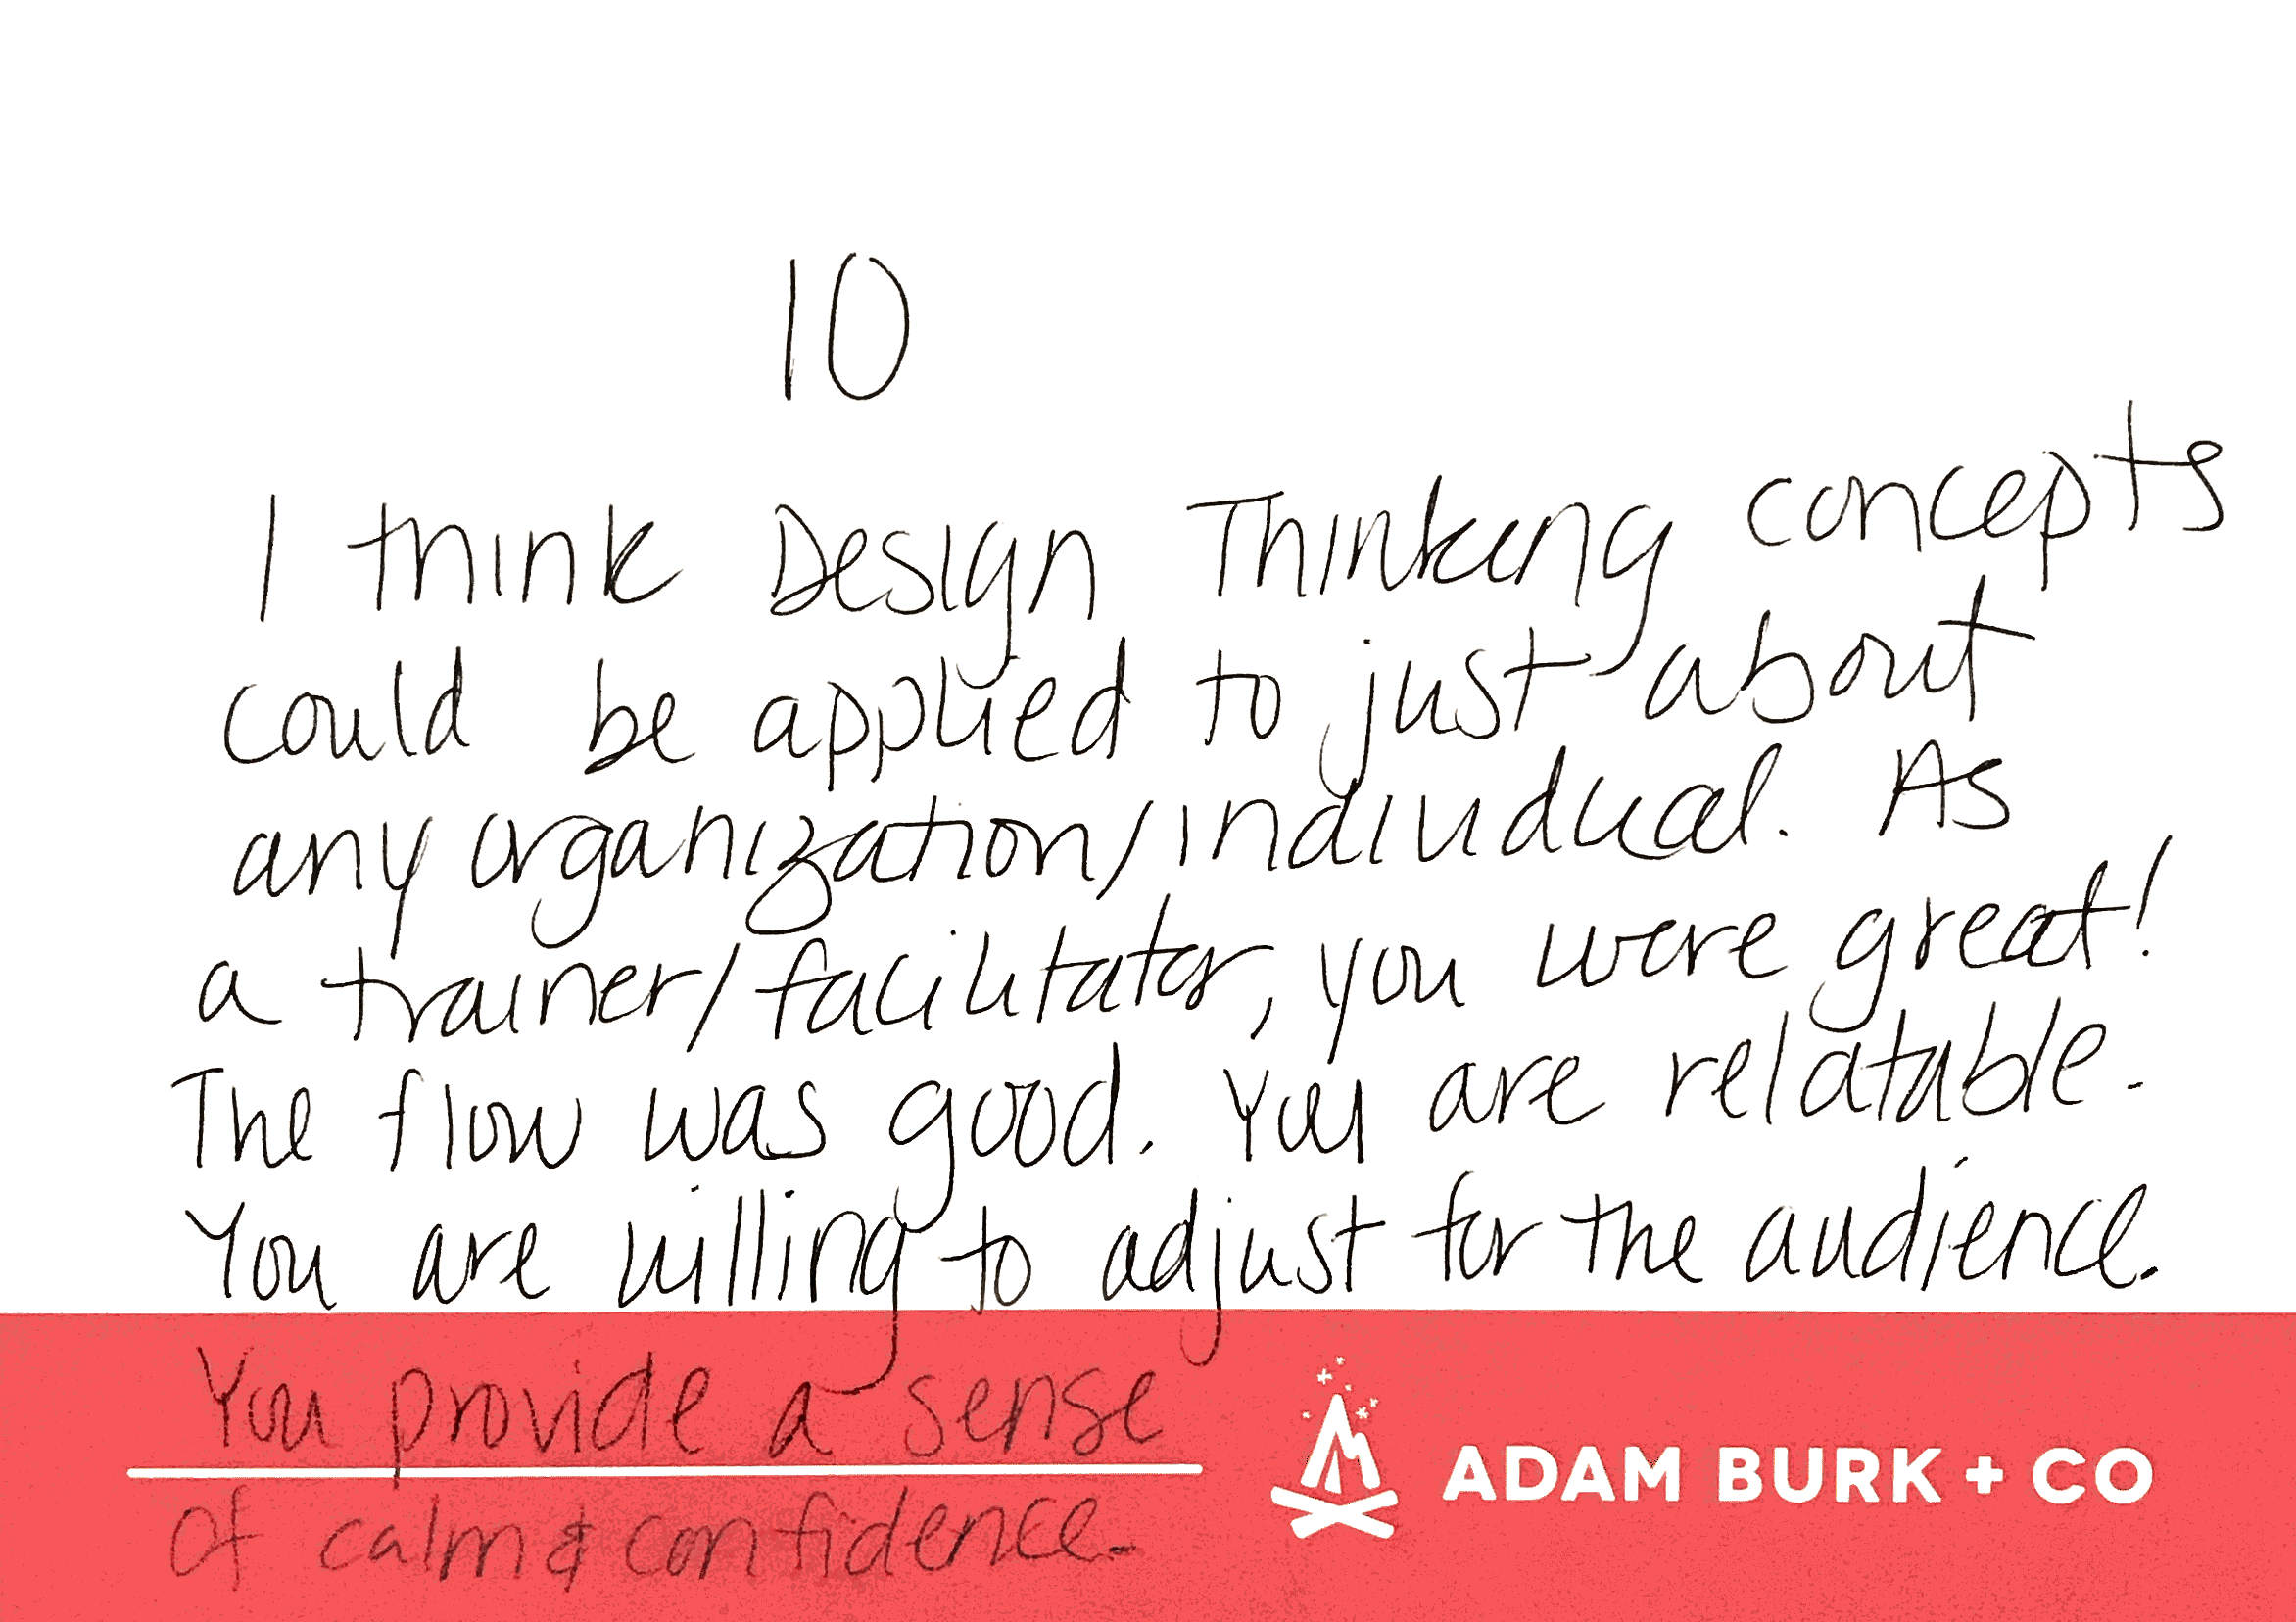 10
I think Design Thinking concepts
could be applied to just about
any organization/individual. As
a trainer/facilitator, you were great!
The flow was good. You are relatable.
You are willing to adjust for the audience.
You provide a sense
of calm & confidence.
ADAM BURK + CO